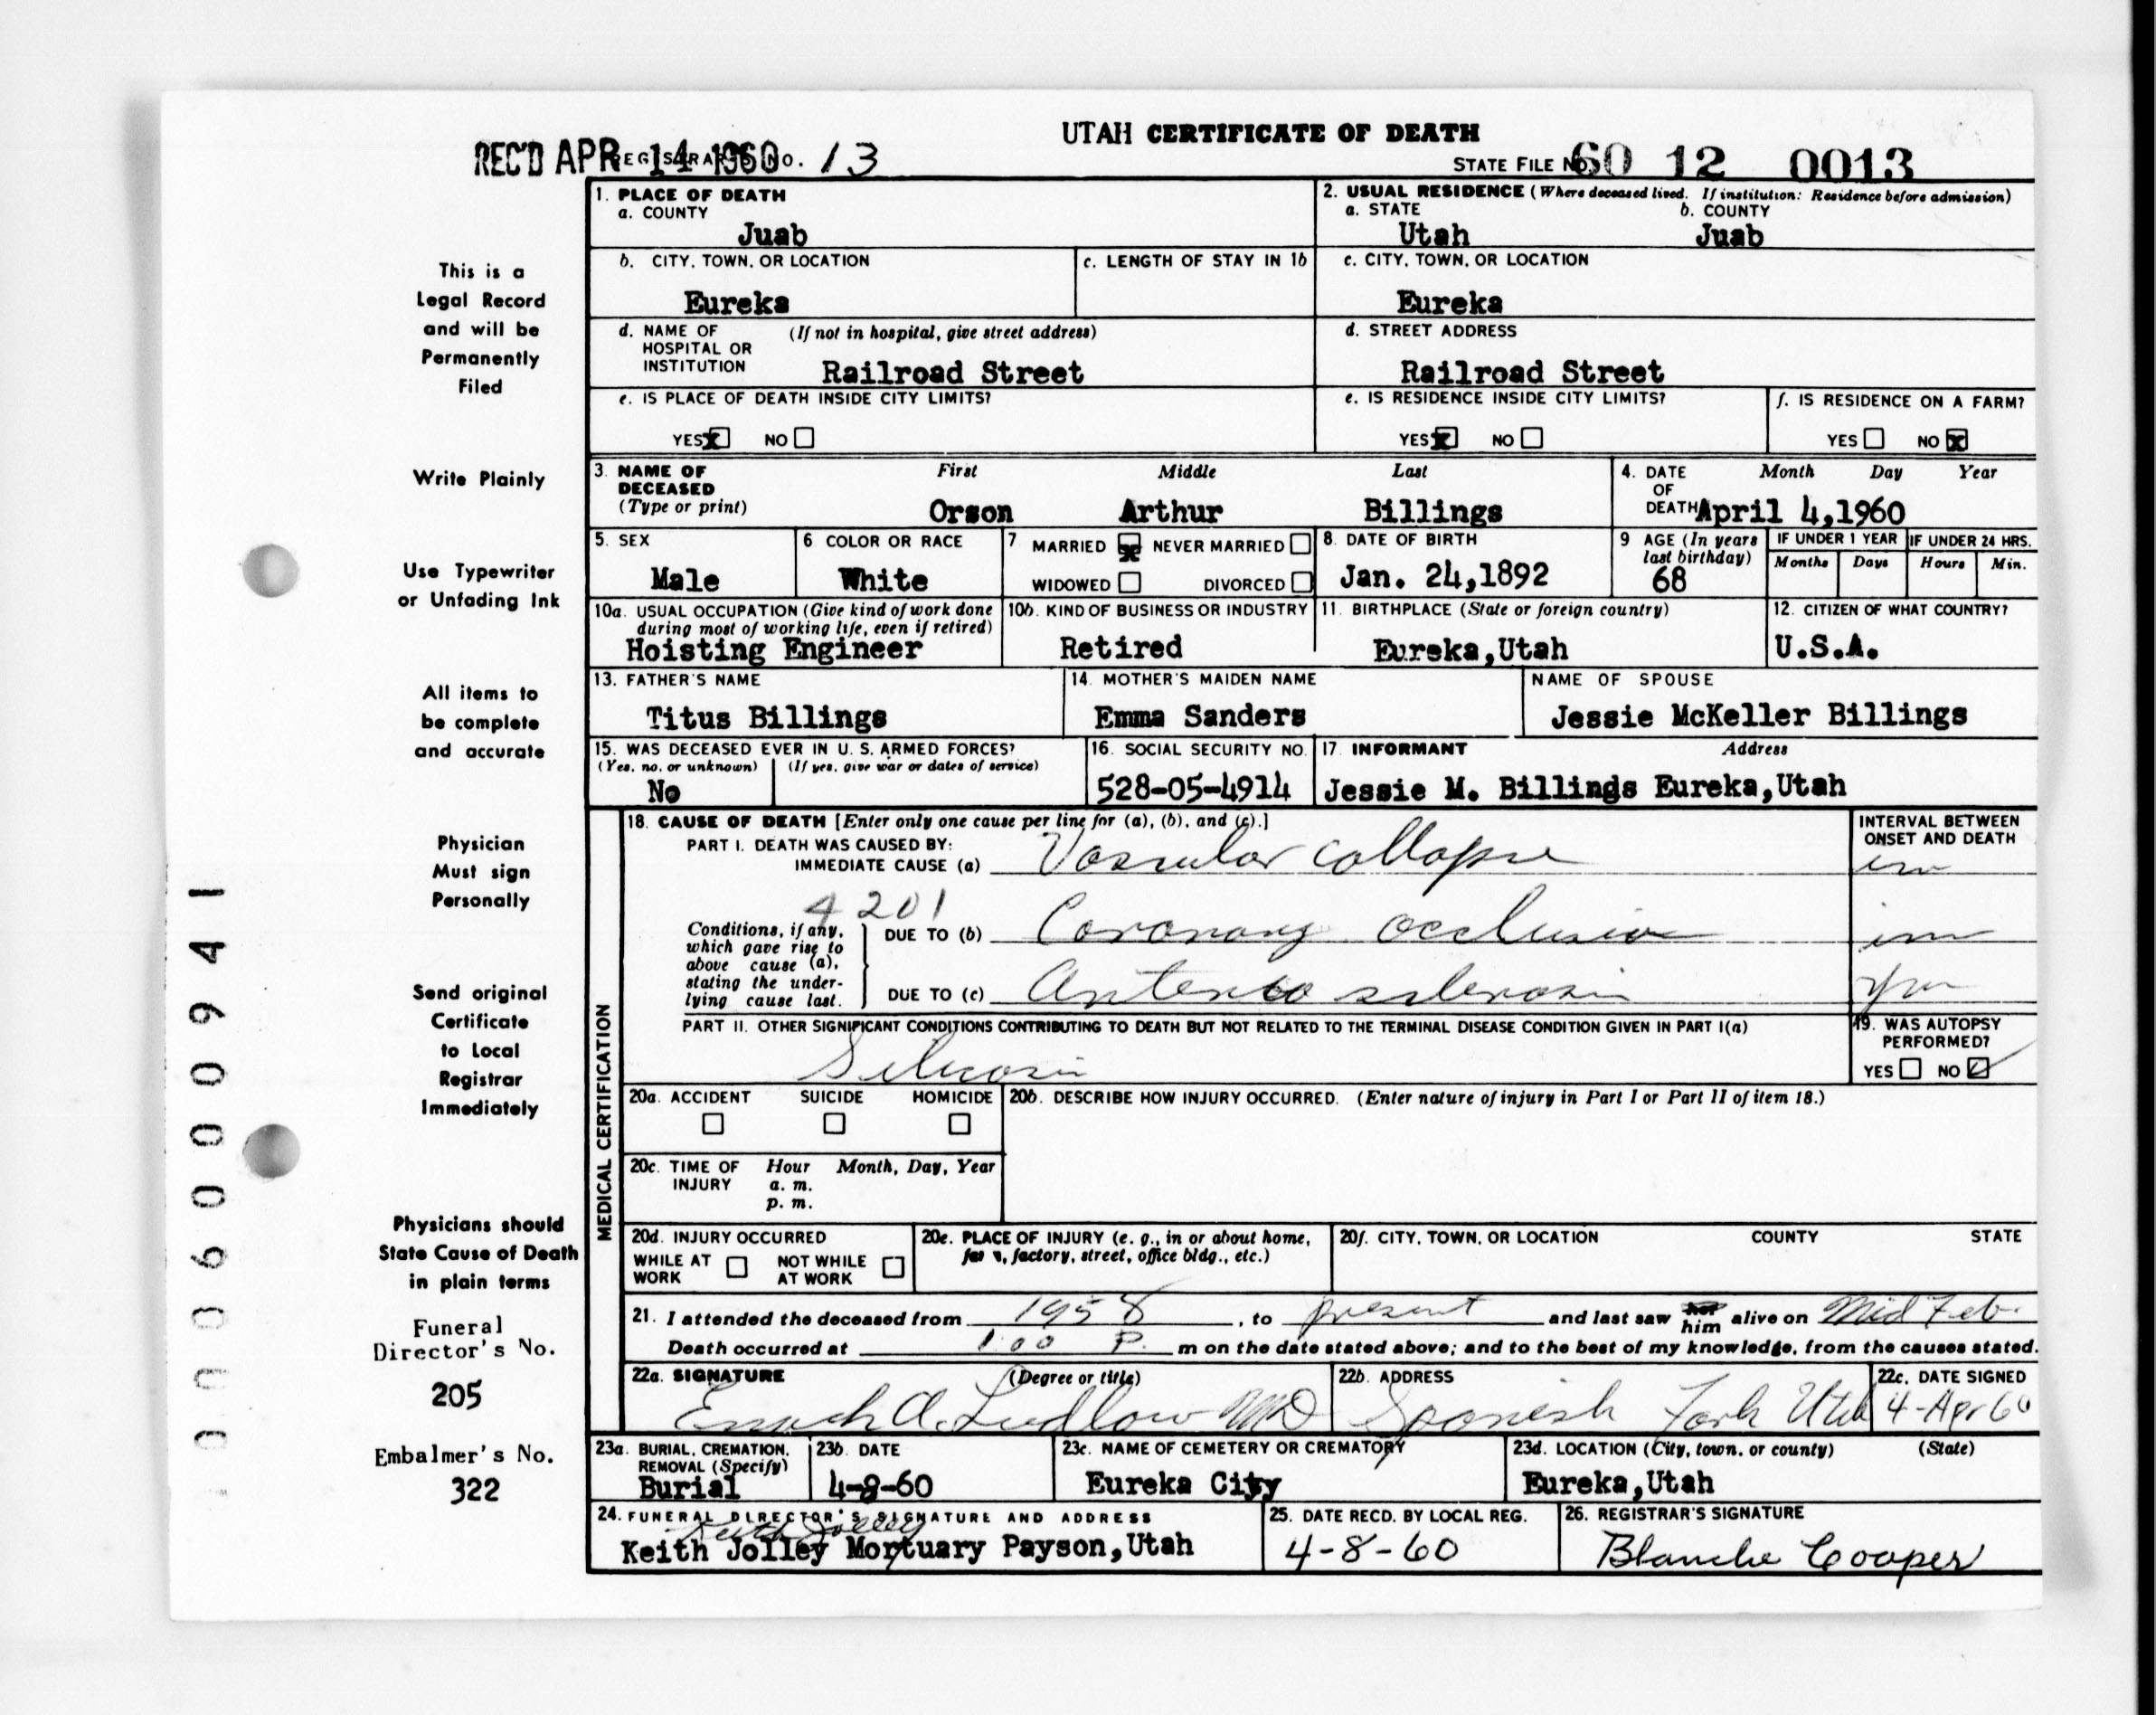 UTAH CERTIFICATE OF DEATH
REC'D APR 14 1960 REGISTRAR'S NO. 13
STATE FILE NO. 60 12 0013
This is a
Legal Record
and will be
Permanently
Filed
Write Plainly
Use Typewriter
or Unfading Ink
All items to
be complete
and accurate
Physician
Must sign
Personally
Send original
Certificate
to Local
Registrar
Immediately
Physicians should
State Cause of Death
in plain terms
Funeral
Director's No.
205
Embalmer's No.
322
000600941
1. PLACE OF DEATH
a. COUNTY
Juab
2. USUAL RESIDENCE (Where deceased lived. If institution: Residence before admission)
a. STATE b. COUNTY
Utah Juab
b. CITY, TOWN, OR LOCATION
Eureka
c. LENGTH OF STAY IN 1b
c. CITY, TOWN, OR LOCATION
Eureka
d. NAME OF (If not in hospital, give street address)
HOSPITAL OR
INSTITUTION Railroad Street
d. STREET ADDRESS
Railroad Street
e. IS PLACE OF DEATH INSIDE CITY LIMITS?
YES x NO
e. IS RESIDENCE INSIDE CITY LIMITS?
YES x NO
f. IS RESIDENCE ON A FARM?
YES NO x
3. NAME OF DECEASED (Type or print)
First Middle Last
Orson Arthur Billings
4. DATE OF DEATH Month Day Year
April 4,1960
5. SEX
Male
6 COLOR OR RACE
White
7 MARRIED x NEVER MARRIED
WIDOWED DIVORCED
8. DATE OF BIRTH
Jan. 24,1892
9 AGE (In years last birthday)
68
IF UNDER 1 YEAR IF UNDER 24 HRS.
Months Days Hours Min.
10a. USUAL OCCUPATION (Give kind of work done
during most of working life, even if retired)
Hoisting Engineer
10b. KIND OF BUSINESS OR INDUSTRY
Retired
11. BIRTHPLACE (State or foreign country)
Eureka,Utah
12. CITIZEN OF WHAT COUNTRY?
U.S.A.
13. FATHER'S NAME
Titus Billings
14. MOTHER'S MAIDEN NAME
Emma Sanders
NAME OF SPOUSE
Jessie McKeller Billings
15. WAS DECEASED EVER IN U. S. ARMED FORCES?
(Yes, no, or unknown) (If yes, give war or dates of service)
No
16. SOCIAL SECURITY NO.
528-05-4914
17. INFORMANT Address
Jessie M. Billings Eureka,Utah
MEDICAL CERTIFICATION
18. CAUSE OF DEATH [Enter only one cause per line for (a), (b), and (c).]
PART I. DEATH WAS CAUSED BY:
IMMEDIATE CAUSE (a) Vascular collapse
INTERVAL BETWEEN
ONSET AND DEATH
4201
Conditions, if any,
which gave rise to
above cause (a),
stating the under-
lying cause last.
DUE TO (b) Coronary occlusion
DUE TO (c) Arterio sclerosis
PART II. OTHER SIGNIFICANT CONDITIONS CONTRIBUTING TO DEATH BUT NOT RELATED TO THE TERMINAL DISEASE CONDITION GIVEN IN PART I(a)
Silicosis
19. WAS AUTOPSY
PERFORMED?
YES NO ✓
20a. ACCIDENT SUICIDE HOMICIDE
20b. DESCRIBE HOW INJURY OCCURRED. (Enter nature of injury in Part I or Part II of item 18.)
20c. TIME OF INJURY Hour Month, Day, Year
a. m.
p. m.
20d. INJURY OCCURRED
WHILE AT WORK NOT WHILE AT WORK
20e. PLACE OF INJURY (e. g., in or about home,
factory, street, office bldg., etc.)
20f. CITY, TOWN, OR LOCATION COUNTY STATE
21. I attended the deceased from 1958, to present and last saw her him alive on Mid Feb.
Death occurred at 1:00 P. m on the date stated above; and to the best of my knowledge, from the causes stated.
22a. SIGNATURE (Degree or title)
Enoch A. Ludlow MD
22b. ADDRESS
Spanish Fork Utah
22c. DATE SIGNED
4-Apr 60
23a. BURIAL, CREMATION,
REMOVAL (Specify)
Burial
23b. DATE
4-8-60
23c. NAME OF CEMETERY OR CREMATORY
Eureka City
23d. LOCATION (City, town, or county) (State)
Eureka,Utah
24. FUNERAL DIRECTOR'S SIGNATURE AND ADDRESS
Keith Jolley
Keith Jolley Mortuary Payson,Utah
25. DATE RECD. BY LOCAL REG.
4-8-60
26. REGISTRAR'S SIGNATURE
Blanche Cooper